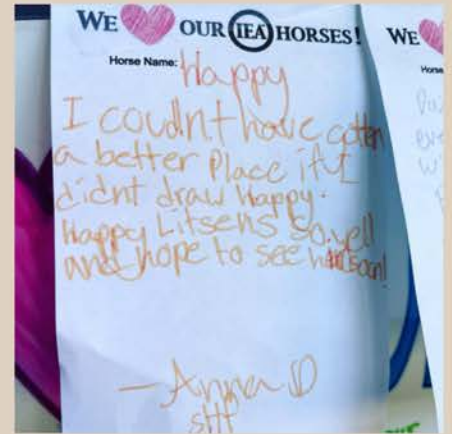 WE OUR IEA HORSES!
Horse Name: Happy
I coudn't have gotten
a better place if I
didnt draw Happy.
Happy Litsens so well
and hope to see him soon!
- Anna D
SHF
WE
Horse